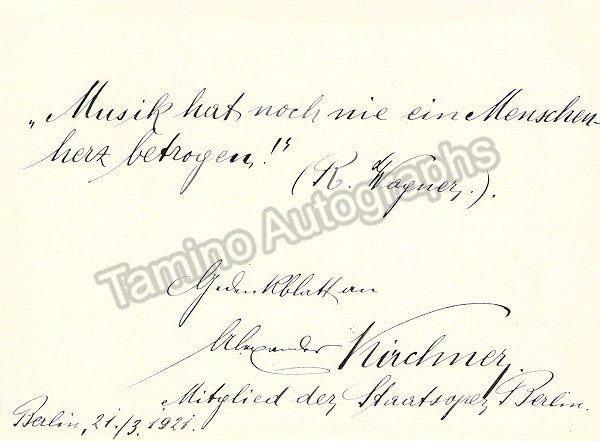 „Musik hat noch nie ein Menschen-
herz betrogen!"
(R. Wagner.).
Tamino Autographs
Gedenkblatt an
Alexander Kirchner,
Mitglied der Staatsoper, Berlin.
Berlin, 21./3. 1921.